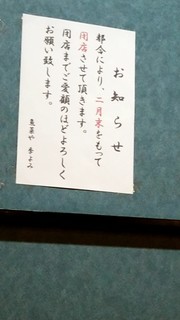 お知らせ
都合により、二月末をもって
閉店させて頂きます。
閉店までご愛顧のほどよろしく
お願い致します。
魚菜や きよみ